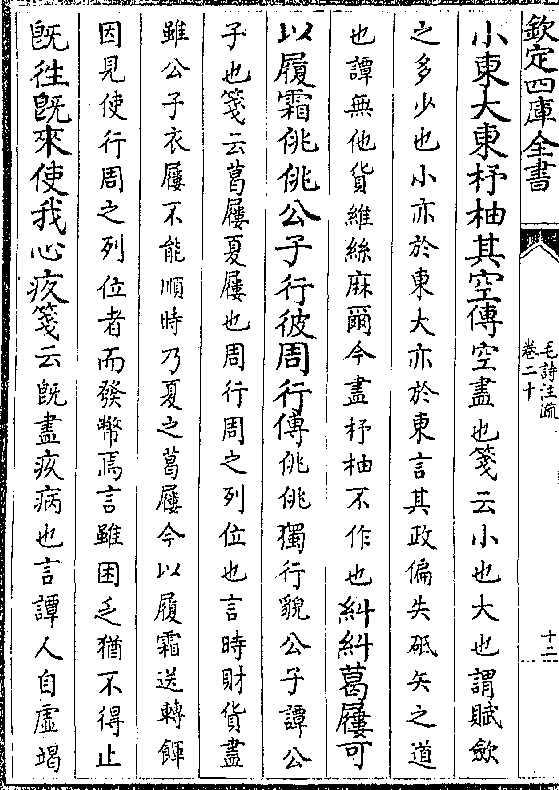 欽定四庫全書
毛詩注疏
卷二十
十二
小東大東杼柚其空傳空盡也箋云小也大也謂賦斂
之多少也小亦於東大亦於東言其政偏失砥矢之道
也譚無他貨維絲麻爾今盡杼柚不作也糾糾葛屨可
以履霜佻佻公子行彼周行傳佻佻獨行貌公子譚公
子也箋云葛屨夏屨也周行周之列位也言時財貨盡
雖公子衣屨不能順時乃夏之葛屨今以履霜送轉餫
因見使行周之列位者而發幣焉言雖困乏猶不得止
既徃既來使我心疚箋云既盡疚病也言譚人自虛竭